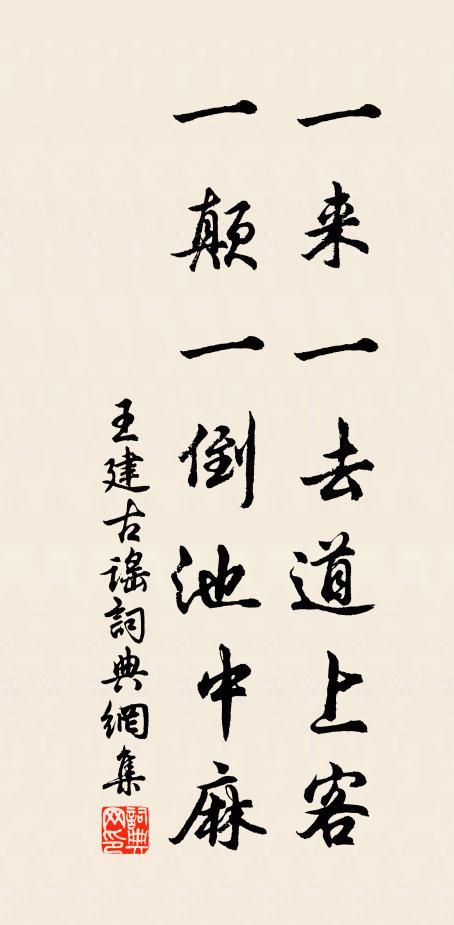 一来一去道上客
一颠一倒池中麻
王建古謠詞典網集
詞典網印